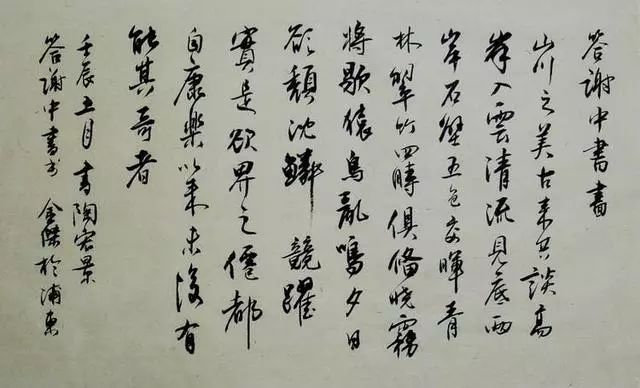 答謝中書書
山川之美古來共談高
峯入雲清流見底兩
岸石壁五色交暉青
林翠竹四時俱備曉霧
將歇猿鳥亂鳴夕日
欲頹沈鱗競躍
實是欲界之僊都
自康樂以來未復有
能其奇者
壬辰五月書陶宏景
答謝中書書 金傑於浦東